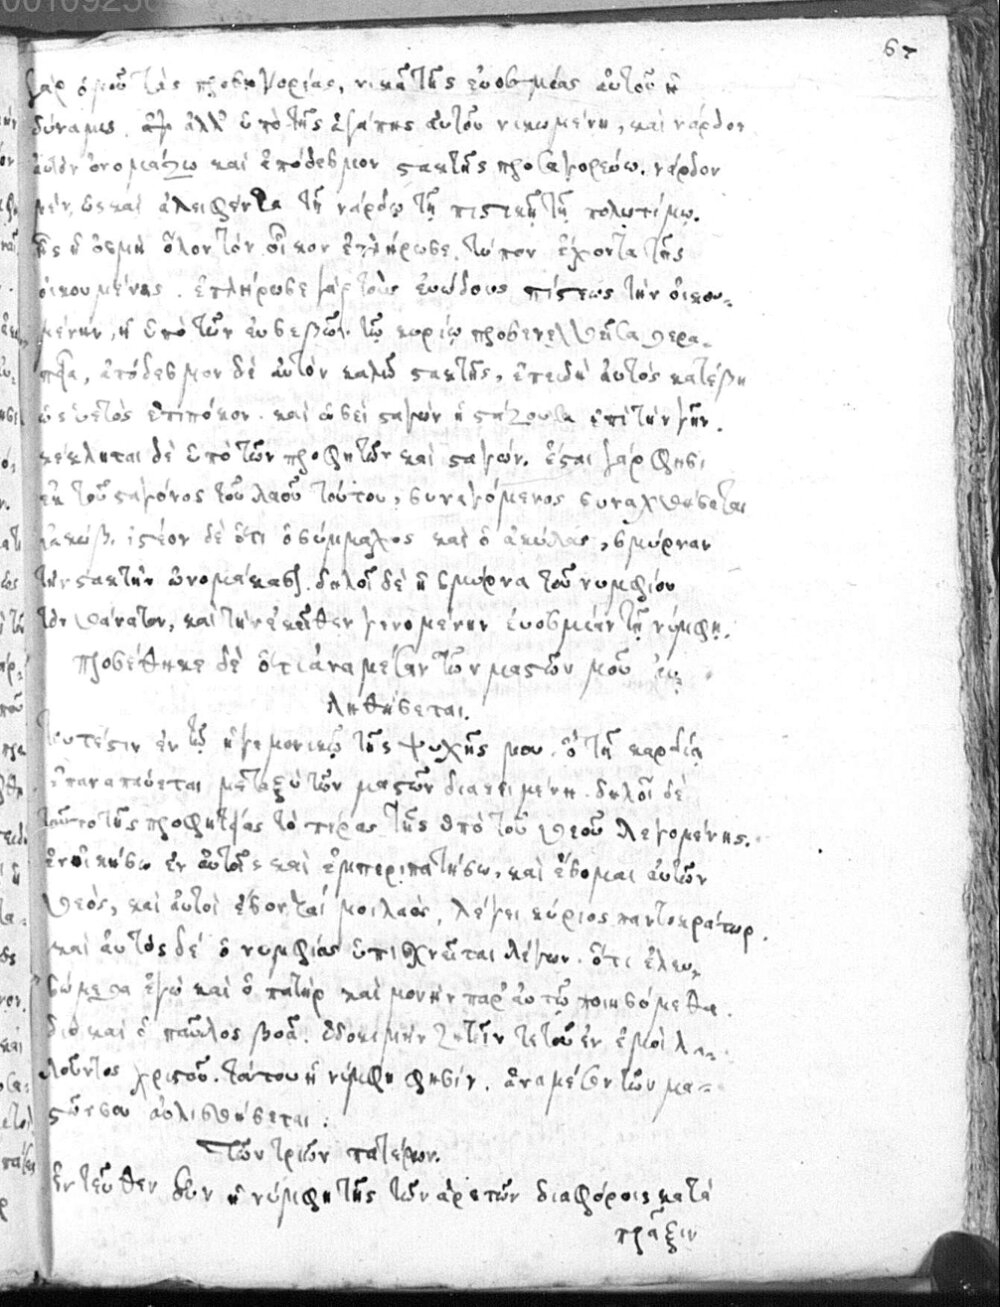 67
γὰρ ὁμοῦ τὰς προσηγορίας, νικᾷ τῆς εὐοσμίας αὐτοῦ ἡ
δύναμις. ἀλλ' ὑπὸ τῆς ἀγάπης αὐτοῦ νικωμένη, καὶ νάρδον
αὐτὸν ὀνομάζω καὶ ἀπόδεσμον στακτῆς προσαγορεύω. νάρδον
μὲν, ὡς καὶ ἀλειφέντα τῇ νάρδῳ τῇ πιστικῇ τῇ πολυτίμῳ.
ἧς ἡ ὀσμὴ ὅλον τὸν οἶκον ἐπλήρωσε. τύπον ἔχοντα τῆς
οἰκουμένης. ἐπλήρωσε γὰρ τοὺς εὐώδους πίστεως τὴν οἰκου-
μένην, ἡ ὑπὸ τῶν εὐσεβῶν τῷ κυρίῳ προσενεχθεῖσα θερα-
πεία, ἀπόδεσμον δὲ αὐτὸν καλῶ στακτῆς, ἐπειδὴ αὐτὸς κατέβη
ὡς ὑετὸς ἐπὶ πόκον. καὶ ὡσεὶ σταγὼν ἡ στάζουσα ἐπὶ τὴν γῆν.
κέκληται δὲ ὑπὸ τῶν προφητῶν καὶ σταγών. ἔσται γὰρ φησι
ἐκ τοῦ σταγόνος τοῦ λαοῦ τούτου, συναγόμενος συναχθήσεται
ἰακώβ. ἰστέον δὲ ὅτι ὁ σύμμαχος καὶ ὁ ἀκύλας, σμύρναν
τὴν στακτὴν ὠνομάκασι. δηλοῖ δὲ ἡ σμύρνα τοῦ νυμφίου
τὸν θάνατον, καὶ τὴν ἐκεῖθεν γινομένην εὐοσμίαν τῇ νύμφῃ.
προσέθηκε δὲ ὅτι ἀναμέσον τῶν μαστῶν μοῦ αὐ-
λισθήσεται.
τουτέστιν ἐν τῷ ἡγεμονικῷ τῆς ψυχῆς μου. ὃ τῇ καρδίᾳ
ἐπαναπαύεται μεταξὺ τῶν μαστῶν διακειμένη. δηλοῖ δὲ
τοῦτο τῆς προφητείας τὸ πέρας τῆς ὑπὸ τοῦ θεοῦ λεγομένης.
ἐνοικήσω ἐν αὐτοῖς καὶ ἐμπεριπατήσω, καὶ ἔσομαι αὐτῶν
θεὸς, καὶ αὐτοὶ ἔσονταί μοι λαὸς, λέγει κύριος παντοκράτωρ.
καὶ αὐτὸς δὲ ὁ νυμφίος ὑπισχνεῖται λέγων. ὅτι ἐλευ-
σώμεθα ἐγὼ καὶ ὁ πατὴρ καὶ μονὴν παρ' αὐτῷ ποιησόμεθα.
διὸ καὶ ὁ παῦλος βοᾶ. εἰ δοκιμὴν ζητεῖτε τοῦ ἐν ἐμοὶ λα-
λοῦντος χριστοῦ. τούτου ἡ νύμφη φησὶν. ἀναμέσον τῶν μα-
στῶν μου αὐλισθήσεται:
Τῶν τριῶν πατέρων.
Ἐντεῦθεν οὖν ἡ νύμφη τῆς τῶν ἀρετῶν διαφόροις κατὰ
πρᾶξιν